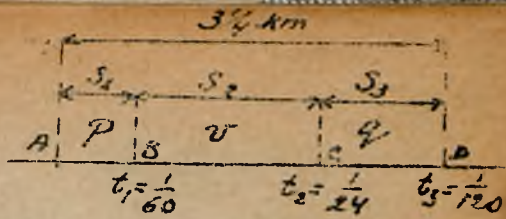 3¼ km
S₁ S₂ S₃
A p B v C q D
t₁=1/60 t₂=1/24 t₃=1/120